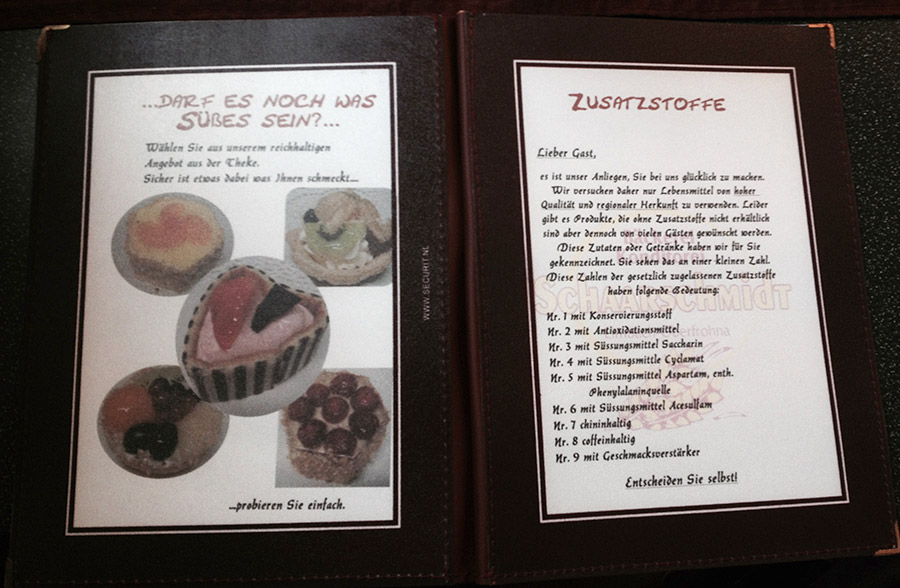 ...DARF ES NOCH WAS
SÜßES SEIN?...
Wählen Sie aus unserem reichhaltigen
Angebot aus der Theke.
Sicher ist etwas dabei was Ihnen schmeckt...
...probieren Sie einfach.
WWW.SECURIT.NL
ZUSATZSTOFFE
Lieber Gast,
es ist unser Anliegen, Sie bei uns glücklich zu machen.
Wir versuchen daher nur Lebensmittel von hoher
Qualität und regionaler Herkunft zu verwenden. Leider
gibt es Produkte, die ohne Zusatzstoffe nicht erhältlich
sind aber dennoch von vielen Gästen gewünscht werden.
Diese Zutaten oder Getränke haben wir für Sie
gekennzeichnet. Sie sehen das an einer kleinen Zahl.
Diese Zahlen der gesetzlich zugelassenen Zusatzstoffe
haben folgende Bedeutung:
SCHAARSCHMIDT
Nr. 1 mit Konservierungsstoff
Nr. 2 mit Antioxidationsmittel
Nr. 3 mit Süssungsmittel Saccharin
Nr. 4 mit Süssungsmittle Cyclamat
Nr. 5 mit Süssungsmittel Aspartam, enth.
Phenylalaninquelle
Nr. 6 mit Süssungsmittel Acesulfam
Nr. 7 chininhaltig
Nr. 8 coffeinhaltig
Nr. 9 mit Geschmacksverstärker
Entscheiden Sie selbst!